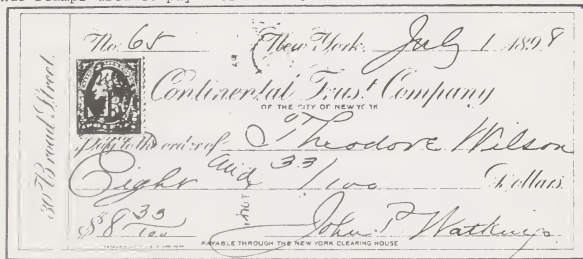 No. 65 New York, July 1 1898
30 Broad Street
Continental Trust Company
OF THE CITY OF NEW YORK
Pay to the order of Theodore Wilson
Eight and 33/100 Dollars
$8 33/100 John P Watkins
PAYABLE THROUGH THE NEW YORK CLEARING HOUSE